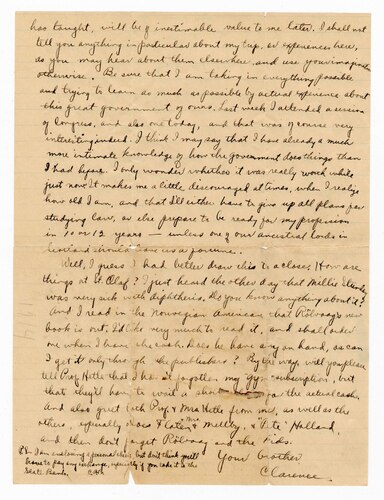 has taught, will be of inestimable value to me later. I shall not
tell you anything in particular about my trip, or experiences here,
as you may hear about them elsewhere, and use your imagination
otherwise. Be sure that I am taking in everything possible
and trying to learn as much as possible by actual experience about
this great government of ours. Last week I attended a session
of Congress, and also one today, and that was of course very
interesting indeed. I think I may say that I have already a much
more intimate knowledge of how the government does things than
I had before. I only wonder whether it was really worth while
just now. It makes me a little discouraged at times, when I realize
how old I am, and that I'll either have to give up all plans for
studying law, or else prepare to be ready for my profession
in 10 or 12 years — unless one of our ancestral lords in
Scotland should leave us a fortune.
Well, I guess I had better draw this to a close. How are
things at St. Olaf? I just heard the other day that Millis
was very sick with diphtheria. Do you know anything about it?
And I read in the Norwegian American that Rölvaag's new
book is out. I'd like very much to read it, and shall order
one when I have the cash. Does he have any on hand, or can
I get it only through the publishers? By the way, will you please
tell Prof. Hetle that I haven't forgotten my gym subscription, but
that they'll have to wait a short for the actual cash.
And also greet both Prof. & Mrs. Hetle from me, as well as the
others, especially Flaten & Mrs. Meltby, & "Pete" Holland,
and then don't forget Rölvaag and the kids.
Your brother
Clarence.
P.S. I am enclosing a personal check, but don't think you'll
have to pay any exchange, especially if you take it to the
State Bank.